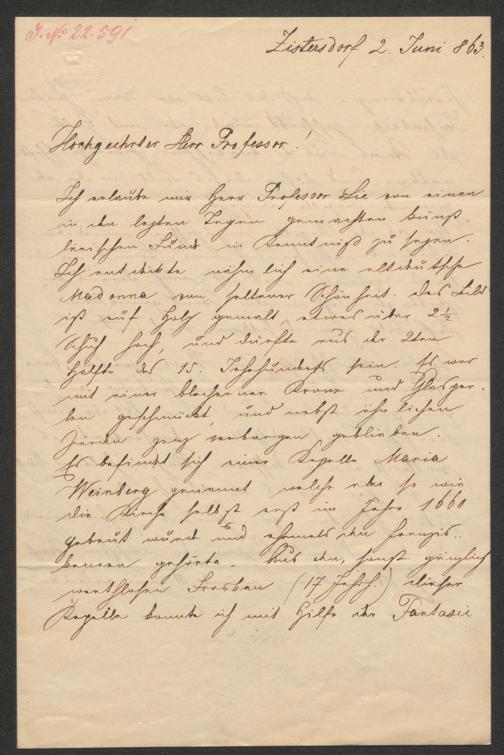 J. No 22.591
Zistersdorf 2. Juni 863.
Hochgeehrter Herr Professor!
Ich erlaube mir Herr Professor Sie von einem
in den letzten Tagen gemachten künst-
lerischen Fund in Kenntniß zu setzen.
Ich entdeckte nähmlich eine altdeutsche
Madonna von seltener Schönheit. das Bild
ist auf Holz gemalt, etwas über 2½
Schuh hoch, und dürfte aus der 2ten
Hälfte des 15. Jahrhunderts sein. Es war
mit einer blechernen Krone und Glasper-
len geschmückt, und nebst ähnlichen
Zierden ganz verborgen geblieben.
Es befindet sich einer Kapelle Maria
Weinberg genannt welche eben so wie
die Kirche selbst erst im Jahre 1660
gebaut wurde und ehemals den Franzis-
kanern gehörte. Aus den, sonst gänzlich
werthlosen Fresken (17 Jahrh.) dieser
Kapelle konnte ich mit Hilfe der Fantasie